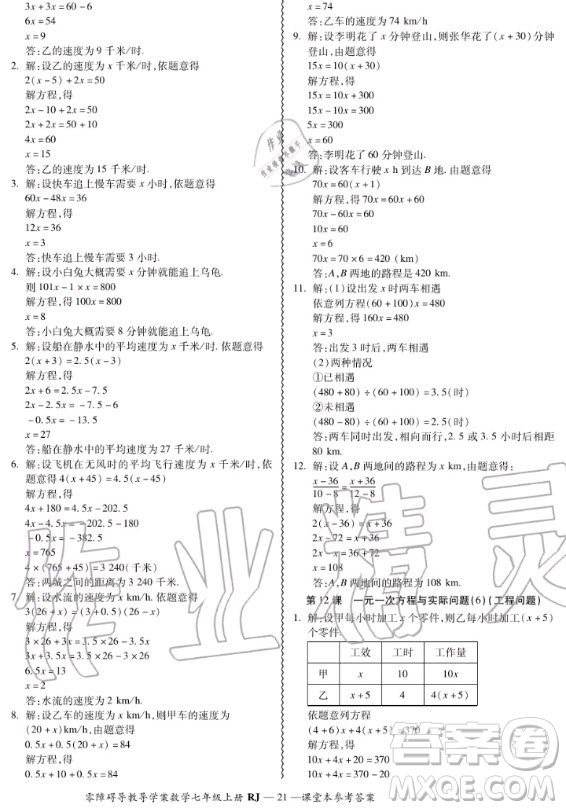 3x+3x+3x=60
6x=54
x=9
答:乙的速度为 9 千米/时.
2. 解:设乙的速度为 x 千米/时,依题意得
2(x-5)+2x=50
解方程,得
2x-10+2x=50
2x+2x=50+10
4x=60
x=15
答:乙的速度为 15 千米/时.
3. 解:设快车追上慢车需要 x 小时,依题意得
60x-48x=36
解方程,得
12x=36
x=3
答:快车追上慢车需要 3 小时.
4. 解:设小白兔大概需要 x 分钟就能追上乌龟.
则 101x-1×x=800
解方程,得
x=8
答:小白兔大概需要 8 分钟就能追上乌龟.
5. 解:设船在静水中的平均速度为 x 千米/时.依题意得
2(x+3)=2.5(x-3)
解方程,得
2x+6=2.5x-7.5
2x-2.5x=-7.5-6
-0.5x=-13.5
x=27
答:船在静水中的平均速度为 27 千米/时.
6. 解:设飞机在无风时的平均飞行速度为 x 千米/时,依
题意得 4(x+45)=4.5(x-45)
解方程,得
4x+180=4.5x-202.5
4x-4.5x=-202.5-180
-0.5x=-382.5
x=765
4×(765+45)=3 240(千米)
答:两城之间的距离为 3 240 千米.
7. 解:设水流的速度为 x km/h,依题意得
3(26+x)=(3+0.5)(26-x)
解方程,得
3×26+3x=3.5×26-3.5x
3x+3.5x=3.5×26-3×26
6.5x=13
x=2
答:水流的速度为 2 km/h.
8. 解:设乙车的速度为 x km/h,则甲车的速度为
(20+x)km/h,由题意得
0.5x+0.5(20+x)=84
解方程,得
0.5x+10+0.5x=84
x=74
答:乙车的速度为 74 km/h
9. 解:设李明花了 x 分钟登山,则张华花了(x+30)分钟
登山,由题意得
15x=10(x+30)
解方程,得
15x=10x+300
15x-10x=300
5x=300
x=60
答:李明花了 60 分钟登山.
10. 解:设客车行驶 x h 到达 B 地.由题意得
70x=60(x+1)
解方程,得
70x=60x+60
x=6
70x=70×6=420(km)
答:A,B 两地的路程是 420 km.
11. 解:(1)设出发 x 时两车相遇
依意列方程(60+100)x=480
x=3
答:出发 3 时后,两车相遇
(2)两种情况
①已相遇
(480+80)÷(60+100)=3.5(时)
②未相遇
(480-80)÷(60+100)=2.5(时)
答:两车同时出发,相向而行,2.5 或 3.5 小时后相距
80 km.
12. 解:设 A,B 两地间的路程为 x km,由题意得:
(x-36)/(10-8)=(x+36)/(12-8)
解方程,得
2(x-36)=x+36
2x-72=x+36
x=108
答:A,B 两地间的路程为 108 km.
第 12 课 一元一次方程与实际问题(6)(工程问题)
1. 解:设甲每小时加工 x 个零件,则乙每小时加工(x+5)
个零件.
工效 工时 工作量
甲 x 10 10x
乙 x+5 4 4(x+5)
依题意列方程
(4+6)x+4(x+5)=370
解方程,得
10x+4x+20=370
零障碍导教导学案数学七年级上册 RJ —21—课堂本参考答案
作业精灵